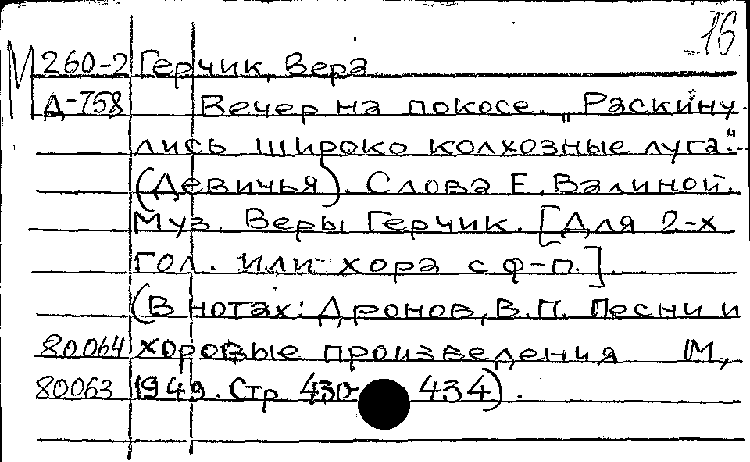 16
М 260-2 Герчик, Вера
Д-758 Вечер на покосе. „Раскину-
лись широко колхозные луга."
(Девичья). Слова Е. Валиной.
Муз. Веры Герчик. [Для 2-х
гол. или хора с ф-п.].
(В нотах: Дронов, В.П. Песни и
80064 хоровые произведения М,
80063 1949. Стр 430- 434).